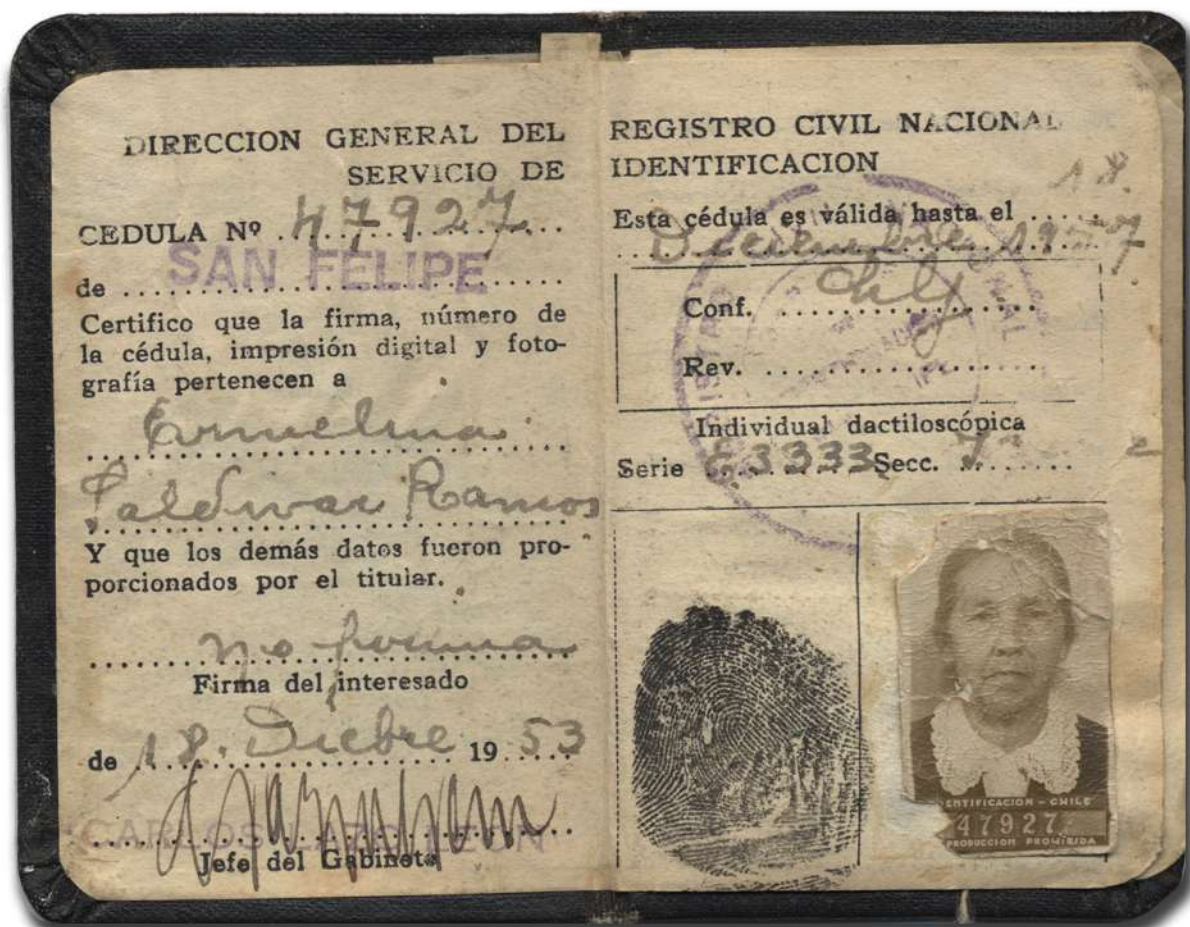 DIRECCION GENERAL DEL
SERVICIO DE
CEDULA Nº 47927
de SAN FELIPE
Certifico que la firma, número de
la cédula, impresión digital y foto-
grafía pertenecen a
Ermelina
Saldivar Ramos
Y que los demás datos fueron pro-
porcionados por el titular.
no firma
Firma del interesado
de 18. Dicbre 1953
CARLOS LEON
Jefe del Gabinete
REGISTRO CIVIL NACIONAL
IDENTIFICACION
Esta cédula es válida hasta el 18.
Diciembre 1957
Conf.
Rev.
Individual dactiloscópica
Serie E3333 Secc.
ENTIFICACION - CHILE
47927
PRODUCCION PROHIBIDA